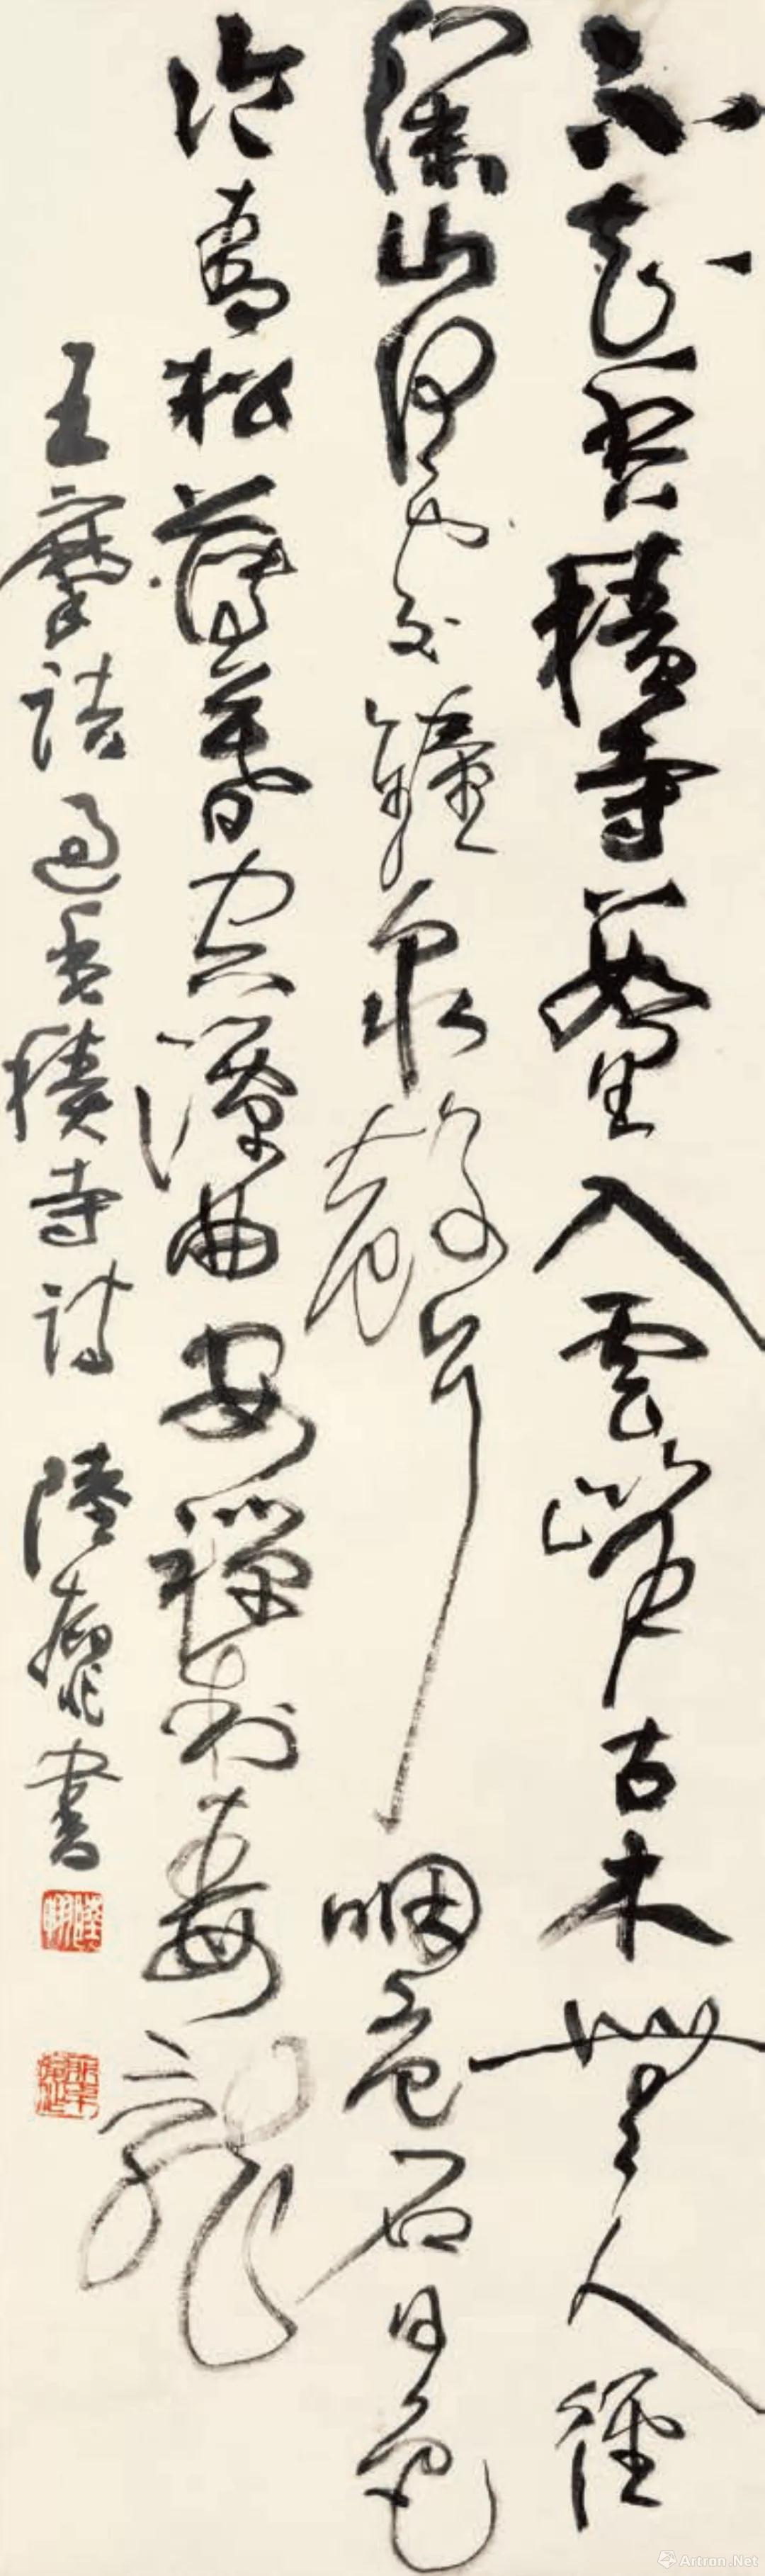 不知香積寺數里入雲峰古木無人徑
深山何處鐘泉聲咽危石日色
冷青松薄暮空潭曲安禪制毒龍
王摩詰過香積寺詩 陸書
Artron.Net